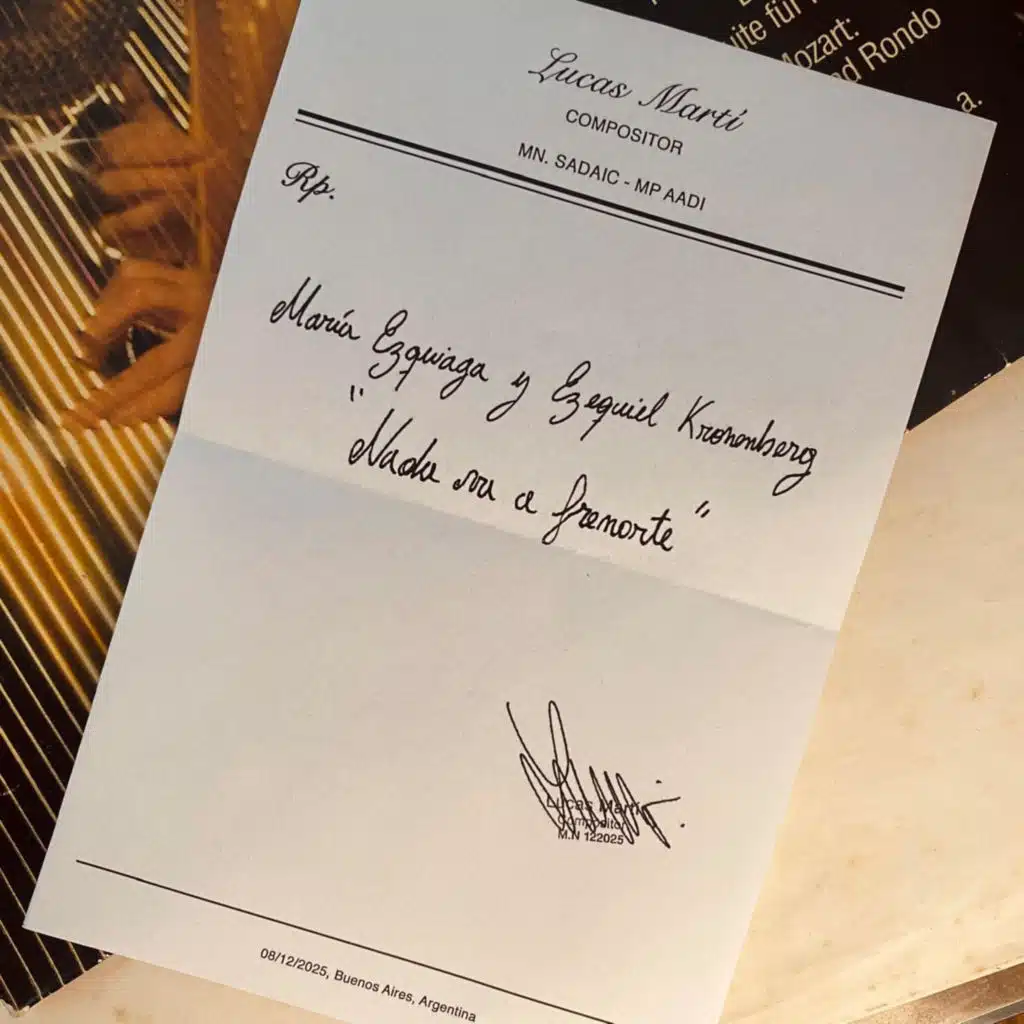 uite für
Mozart:
nd Rondo
a.
Lucas Martí
COMPOSITOR
MN. SADAIC - MP AADI
Rp.
María Ezquiaga y Ezequiel Kronenberg
"Nada va a frenarte"
Lucas Martí
Compositor
M.N 122025
08/12/2025, Buenos Aires, Argentina